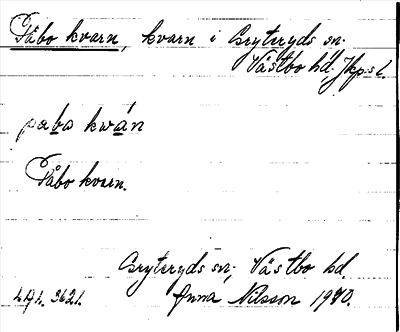 Påbo kvarn, kvarn i Gryteryds sn.
Västbo hd. Jkp:s l.
påbo kwán
Påbo kvarn.
Gryteryds sn; Västbo hd.
Anna Nilsson 1940.